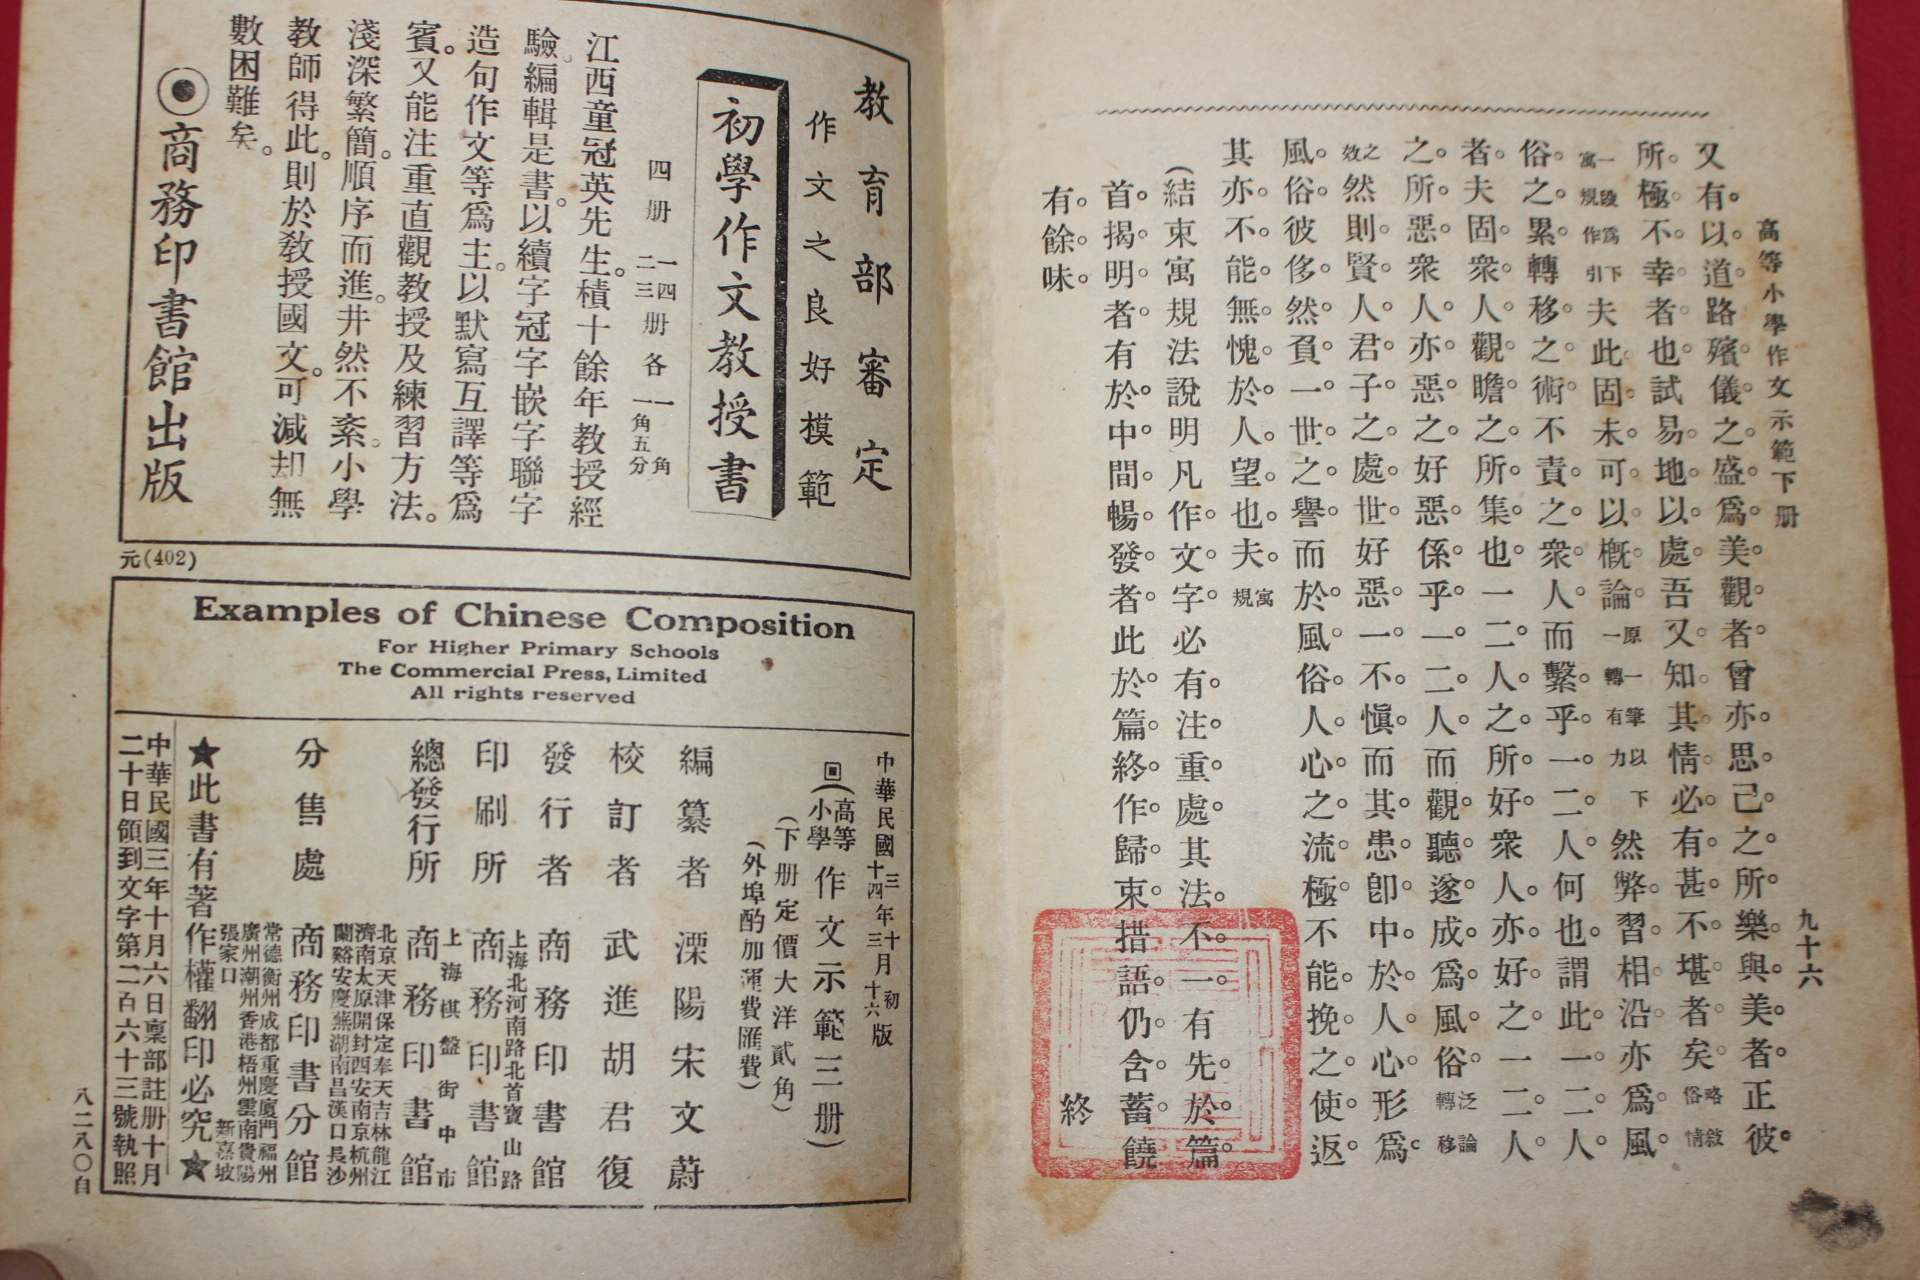 高等小學作文示範下册
九十六
又有以道路殯儀之盛爲美觀者曾亦思己之所樂與美者正彼
所極不幸者也試易地以處吾又知其情必有甚不堪者矣略敘俗情
一段爲下寓規作引夫此固未可以概論原一筆以下一轉有力然弊習相沿亦爲風
俗之累轉移之術不責之衆人而繫乎一二人何也謂此一二人
者夫固衆人觀瞻之所集也一二人之所好衆人亦好之一二人
之所惡衆人亦惡之好惡係乎一二人而觀聽遂成爲風俗泛論轉移
之效然則賢人君子之處世好惡一不愼而其患卽中於人心形爲
風俗彼侈然負一世之譽而於風俗人心之流極不能挽之使返
其亦不能無愧於人望也夫寓規
(結束寓規法說明凡作文字必有注重處其法不一有先於篇
首揭明者有於中間暢發者此於篇終作歸束措語仍含蓄饒
有餘味
終
教育部審定
作文之良好模範
初學作文教授書
四册 一四二三册各一角一角五分
江西童冠英先生積十餘年教授經
驗編輯是書以續字冠字嵌字聯字
造句作文等爲主以默寫互譯等爲
賓又能注重直觀教授及練習方法
淺深繁簡順序而進井然不紊小學
教師得此則於教授國文可減却無
數困難矣
◉商務印書館出版
元(402)
Examples of Chinese Composition
For Higher Primary Schools
The Commercial Press, Limited
All rights reserved
中華民國三年十月初版
十四年三月十六版
回(高等小學作文示範三册)
(下册定價大洋貳角)
(外埠酌加運費匯費)
編纂者 溧陽宋文蔚
校訂者 武進胡君復
發行者 商務印書館
上海北河南路北首寶山路
印刷所 商務印書館
上海棋盤街中市
總發行所 商務印書館
北京天津保定奉天吉林龍江
濟南太原開封西安南京杭州
蘭谿安慶蕪湖南昌漢口長沙
分售處 商務印書分館
常德衡州成都重慶廈門福州
廣州潮州香港梧州雲南貴陽
張家口 新嘉坡
★此書有著作權翻印必究★
中華民國三年十月六日稟部註册十月
二十日領到文字第二百六十三號執照
八二八〇自